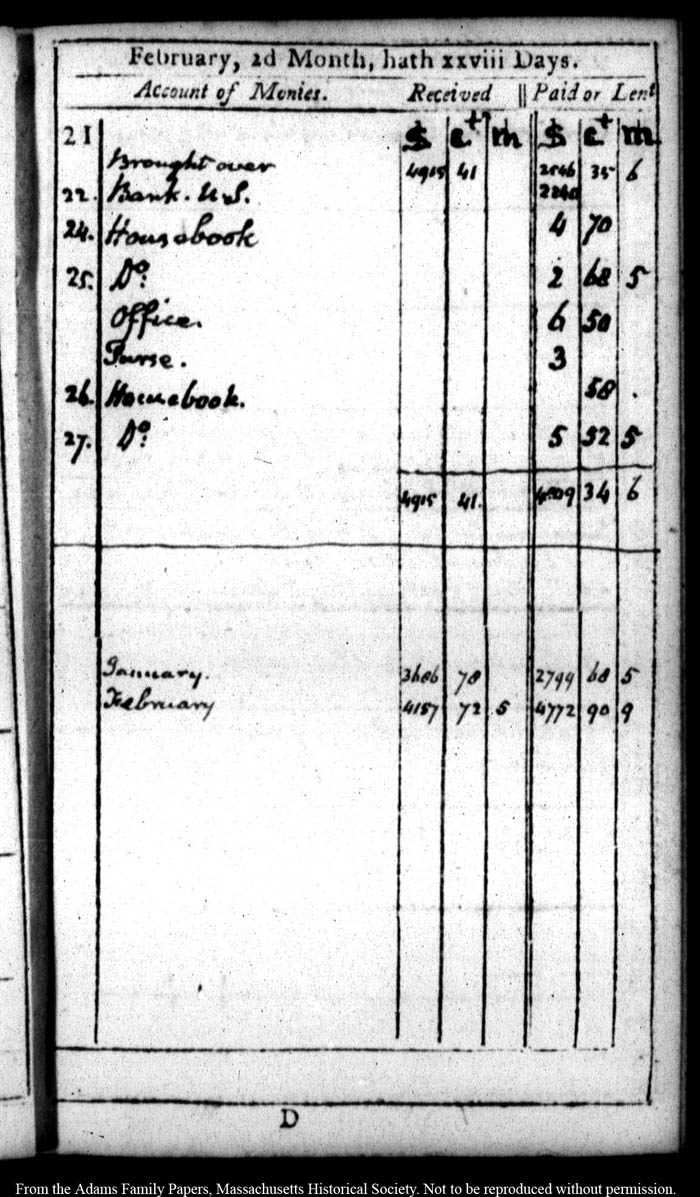 February, 2d Month, hath xxviii Days.
Account of Monies. Received || Paid or Lent
21 $ ct m $ ct m
Brought over 4915 41 2546 35 6
22. Bank. U.S. 2240
24. Housebook 4 70
25. Do: 2 68 5
Office. 6 50
Purse. 3
26. Housebook. 58 .
27. Do: 5 52 5
4915 41. 4809 34 6
January. 3686 78 2799 68 5
February 4157 72 5 4772 90 9
D
From the Adams Family Papers, Massachusetts Historical Society. Not to be reproduced without permission.